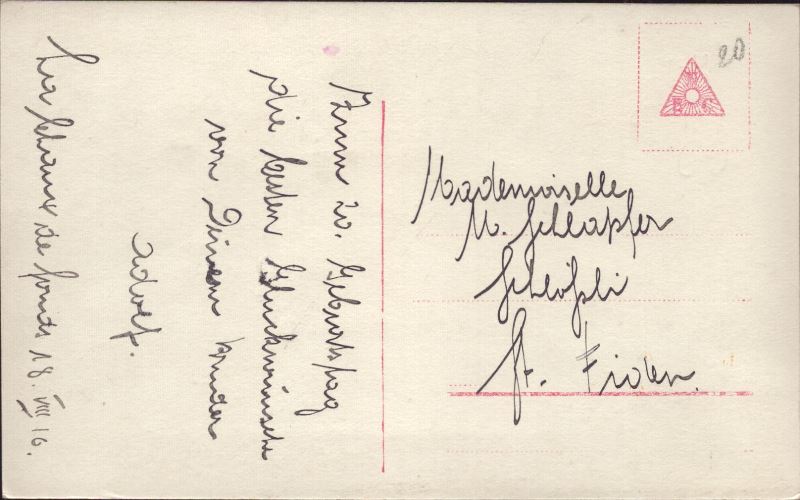 Zum 20. Geburtstag
die besten Glückwünsche
von Deinem Bruder
Adolf.
La Chaux de fonds 18. VIII 16.
20
Mademoiselle
M. Schlapfer
Schlößli
St. Fiden.